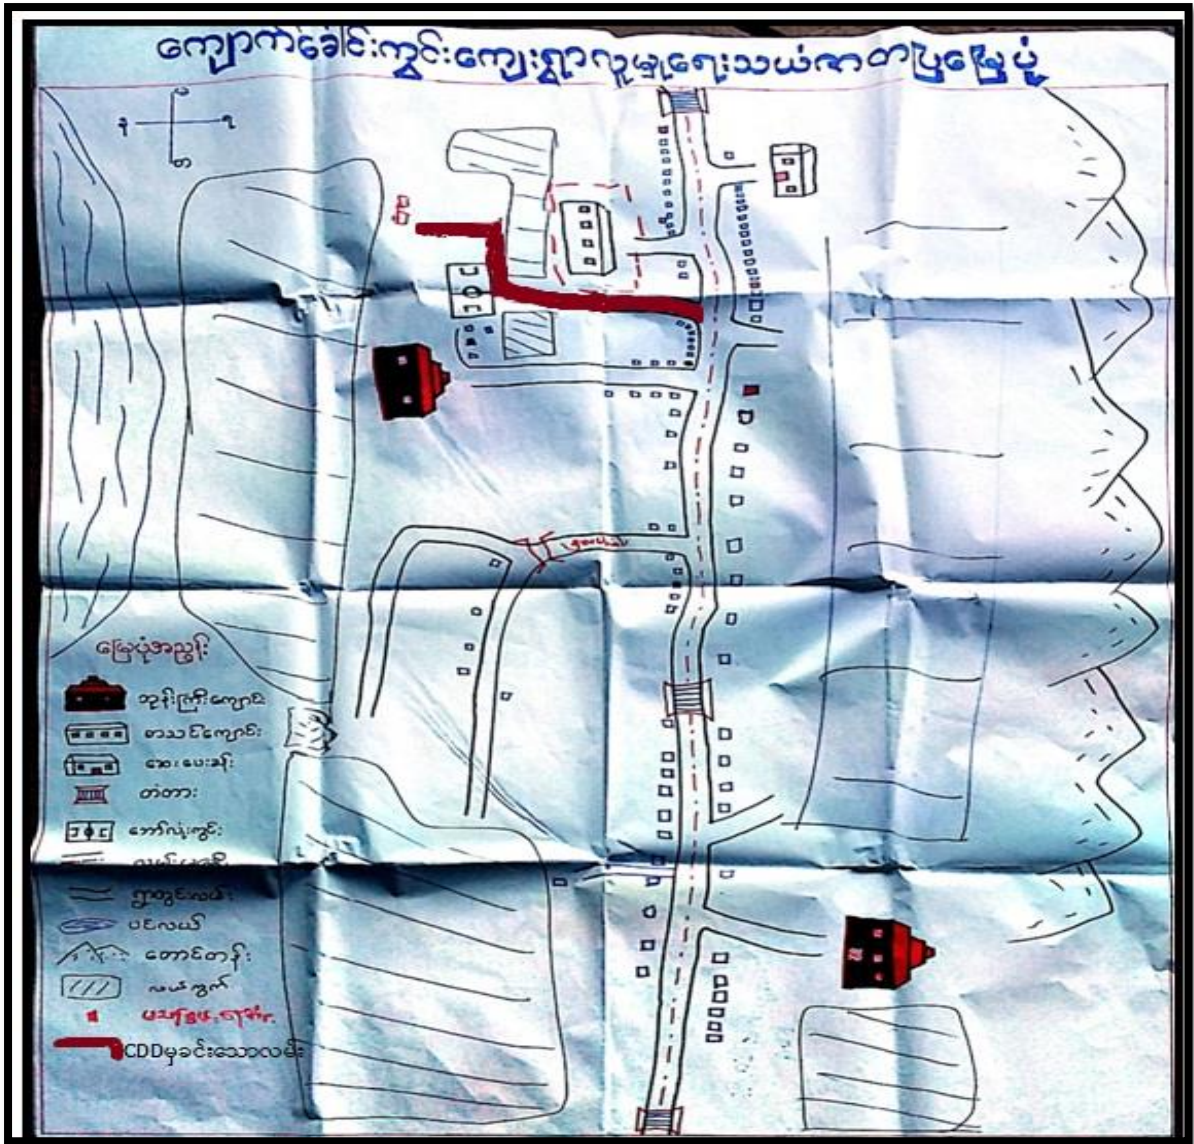 ကျောက်ခေါင်းကွင်းကျေးရွာလူမှုရေးသယံဇာတပြမြေပုံ
မြေပုံအညွှန်း
ဘုန်းကြီးကျောင်း
စာသင်ကျောင်း
ဆေးပေးခန်း
တံတား
ဘော်လုံးကွင်း
ရွာတွင်းလမ်း
ပင်လယ်
တောင်တန်း
လယ်ကွက်
CDDမှခင်းသောလမ်း